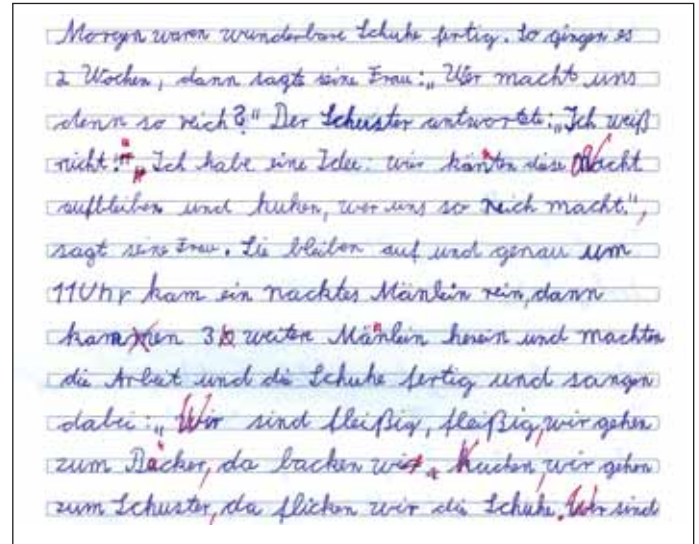 Morgen waren wunderbare Schuhe fertig. So gingen es
2 Wochen, dann sagte seine Frau: „Wer macht uns
denn so reich?" Der Schuster antwortete: „Ich weiß
nicht!" „Ich habe eine Idee: wir könnten diese Nacht
aufbleiben und kuken, wer uns so reich macht.",
sagt seine Frau. Sie bleiben auf und genau um
11 Uhr kam ein nacktes Mänlein rein, dann
kammen 30 weitere Mänlein herein und machten
die Arbeit und die Schuhe fertig und sangen
dabei: „Wir sind fleißig, fleißig, wir gehen
zum Bäcker, da backen wir Kuchen, wir gehen
zum Schuster, da flicken wir die Schuhe. Wir sind